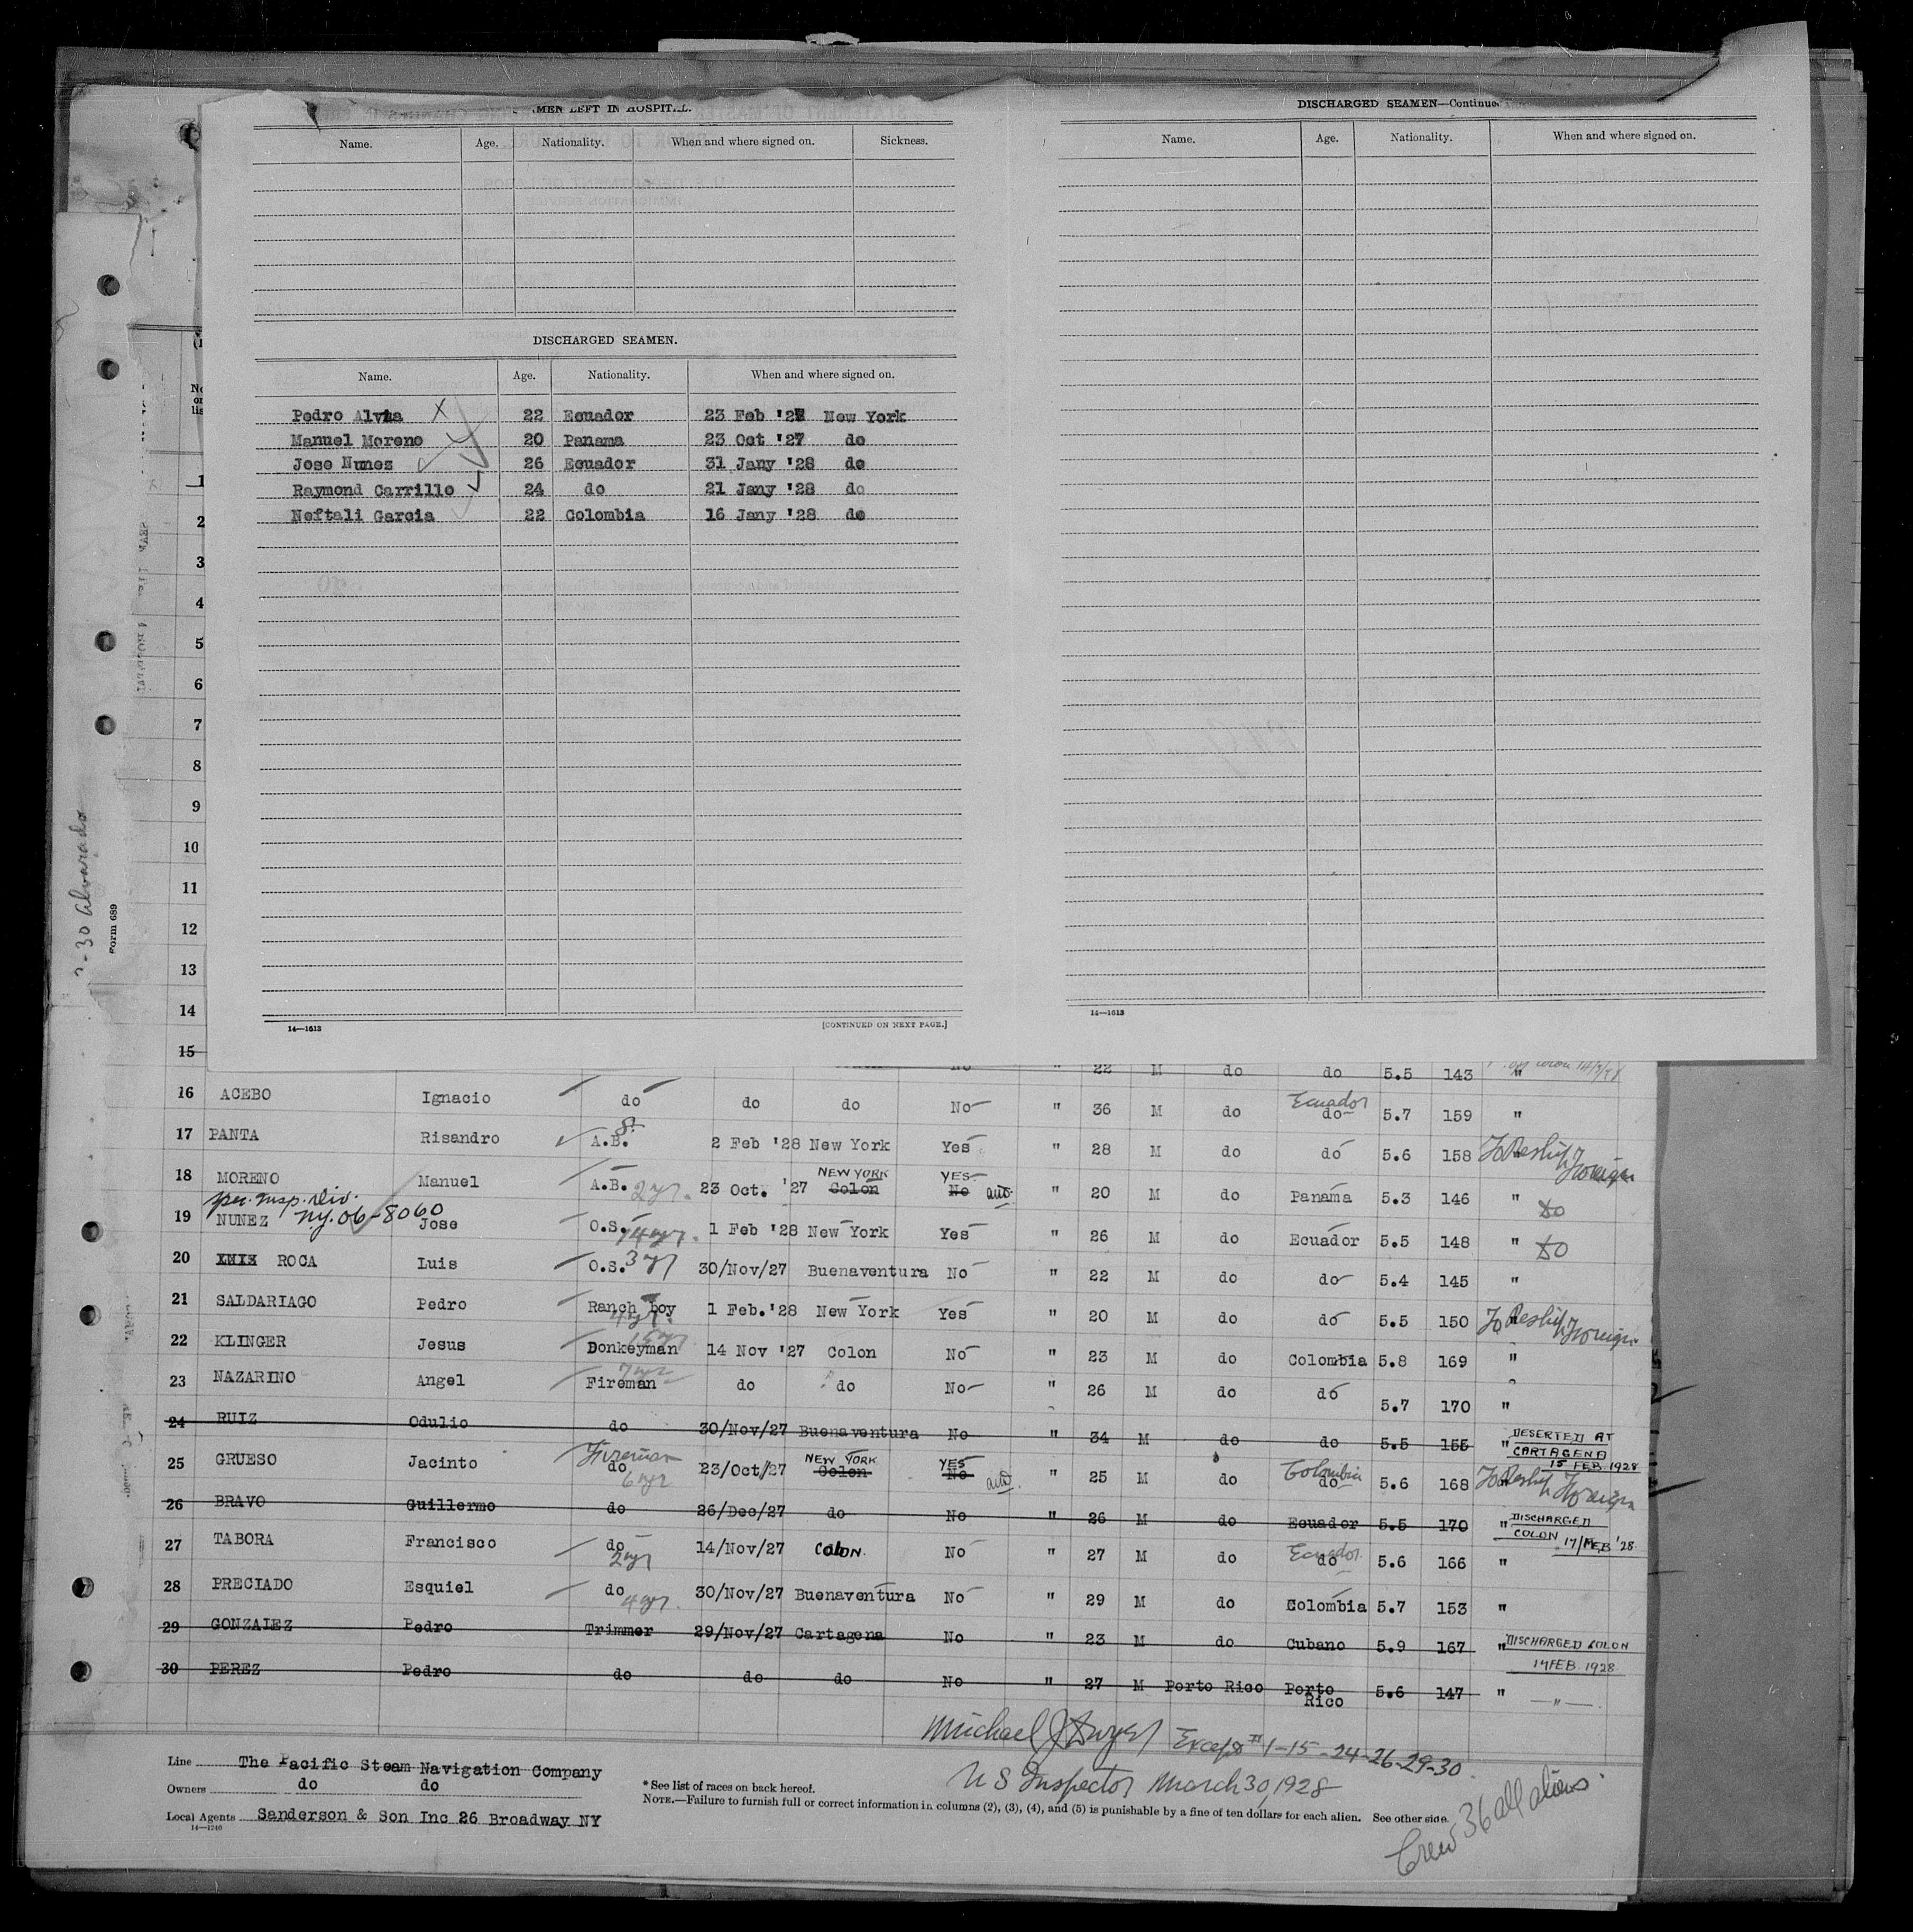 MEN LEFT IN HOSPITAL.
Name. Age. Nationality. When and where signed on. Sickness.
DISCHARGED SEAMEN.
Name. Age. Nationality. When and where signed on.
Pedro X 22 Ecuador 23 Feb '27 New York
Manuel Moreno 20 Panama 23 Oct '27 do
Jose Nunez 26 Ecuador 31 Jany '28 do
Raymond Carrillo 24 do 21 Jany '28 do
Neftali Garcia 22 Colombia 16 Jany '28 do
14—1613 [CONTINUED ON NEXT PAGE.]
DISCHARGED SEAMEN—Continue
Name. Age. Nationality. When and where signed on.
14—1613
30 Alvarado
Form 689
No
on
lis
1
2
3
4
5
6
7
8
9
10
11
12
13
14
15 No " 22 M do do 5.5 143 "
16 ACEBO Ignacio do do do No " 36 M do Ecuador do 5.7 159 "
17 PANTA Risandro A.B. 2 Feb '28 New York Yes " 28 M do do 5.6 158 " To Reship Foreign
18 MORENO Manuel A.B. 2 yr. 23 Oct. '27 Colon NEW YORK No YES " 20 M do Panama 5.3 146 " do
per. insp. div. ny. 06-8060
19 NUNEZ Jose O.S. 1 Feb '28 New York Yes " 26 M do Ecuador 5.5 148 " do
20 ROCA Luis O.S. 3 yr 30/Nov/27 Buenaventura No " 22 M do do 5.4 145 "
21 SALDARIAGO Pedro Ranch boy 4 yr. 1 Feb.'28 New York Yes " 20 M do do 5.5 150 " To Reship Foreign
22 KLINGER Jesus Donkeyman 14 Nov '27 Colon No " 23 M do Colombia 5.8 169 "
23 NAZARINO Angel Fireman do do No " 26 M do do 5.7 170 "
24 RUIZ Odulio do 30/Nov/27 Buenaventura No " 34 M do do 5.5 155 " DESERTED AT CARTAGENA 15 FEB 1928
25 GRUESO Jacinto Fireman do 6 yr 23/Oct/27 Colon NEW YORK No YES " 25 M do Colombia do 5.6 168 " To Reship Foreign
26 BRAVO Guillermo do 26/Dec/27 do No " 26 M do Ecuador 5.5 170 " DISCHARGED COLON 17/FEB '28
27 TABORA Francisco do 2 yr 14/Nov/27 COLON No " 27 M do Ecuador do 5.6 166 "
28 PRECIADO Esquiel do 4 yr. 30/Nov/27 Buenaventura No " 29 M do Colombia 5.7 153 "
29 GONZALEZ Pedro Trimmer 29/Nov/27 Cartagena No " 23 M do Cubano 5.9 167 " DISCHARGED COLON 17 FEB. 1928
30 PEREZ Pedro do do do No " 27 M Porto Rico Porto Rico 5.6 147 " — " —
Michael J Dwyer Except # 1-15-24-26-29-30
US Inspector March 30, 1928
Crew 36 all aliens
Line The Pacific Steam Navigation Company
Owners do do
Local Agents Sanderson & Son Inc 26 Broadway NY
14—1240
* See list of races on back hereof.
NOTE.—Failure to furnish full or correct information in columns (2), (3), (4), and (5) is punishable by a fine of ten dollars for each alien. See other side.